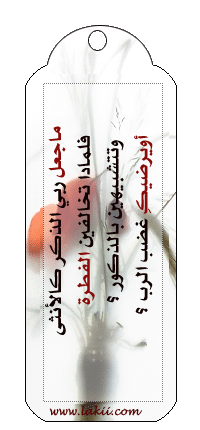 ماجعل ربي الذكر كالأنثى
فلماذا تخالفين الفطرة
وتتشبيهين بالذكور ؟
أويرضيك غضب الرب ؟
www.lakii.com